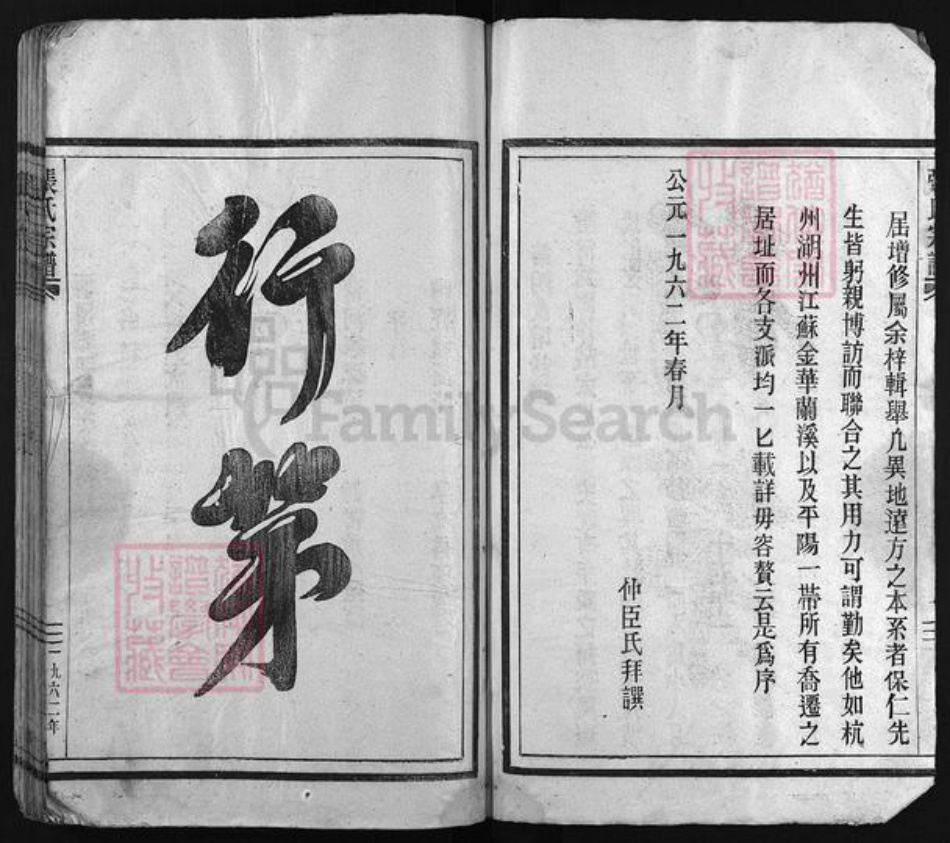 屆增修屬余梓輯舉凢異地遠方之本系者保仁先
生皆躬親博訪而聯合之其用力可謂勤矣他如杭
州湖州江蘇金華蘭溪以及平陽一帶所有喬遷之
居址而各支派均一匕載詳毋容贅云是爲序
公元一九六二年春月
仲臣氏拜譔
行第
張氏宗譜
一九六二年
FamilySearch
譜學會
收藏